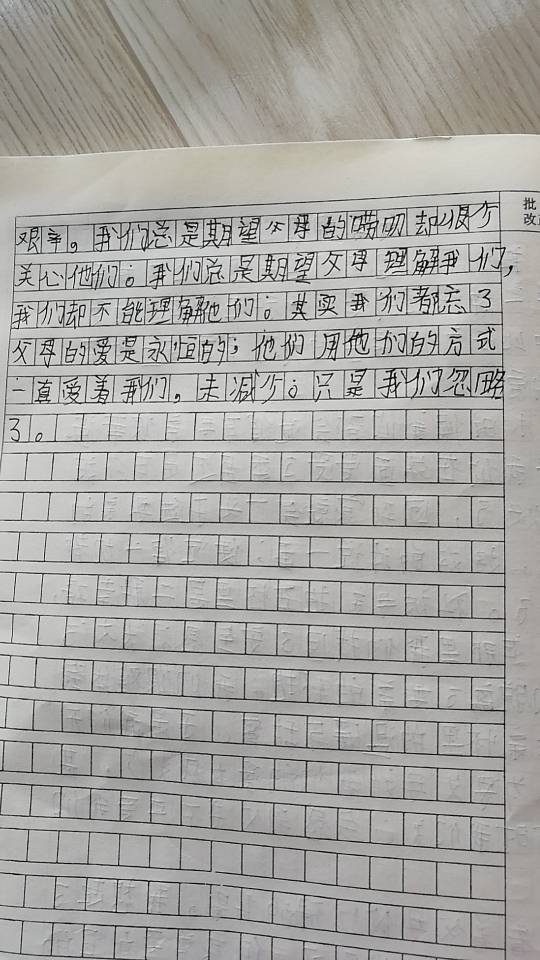 艰辛。我们总是期望父母的唠叨却很少
关心他们。我们总是期望父母理解我们,
我们却不能理解他们。其实我们都忘了
父母的爱是永恒的;他们用他们的方式
一直爱着我们。未减少。只是我们忽略
了。
批
改